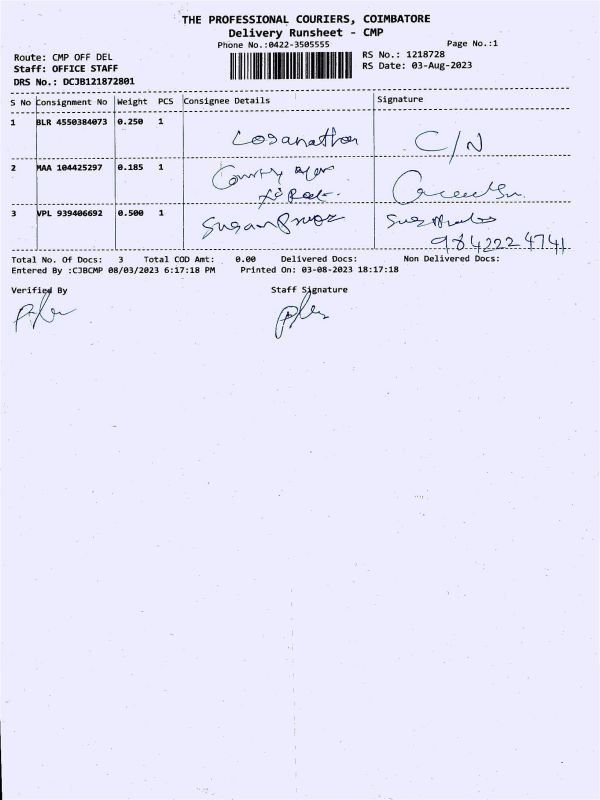 THE PROFESSIONAL COURIERS, COIMBATORE
Delivery Runsheet - CMP
Phone No.:0422-3505555 Page No.:1
Route: CMP OFF DEL RS No.: 1218728
Staff: OFFICE STAFF RS Date: 03-Aug-2023
DRS No.: DCJB121872801
S No Consignment No Weight PCS Consignee Details Signature
1 BLR 4550384073 0.250 1
C/N
2 MAA 104425297 0.185 1
3 VPL 939406692 0.500 1
Susan
9842224741
Total No. Of Docs: 3 Total COD Amt: 0.00 Delivered Docs: Non Delivered Docs:
Entered By :CJBCMP 08/03/2023 6:17:18 PM Printed On: 03-08-2023 18:17:18
Verified By Staff Signature